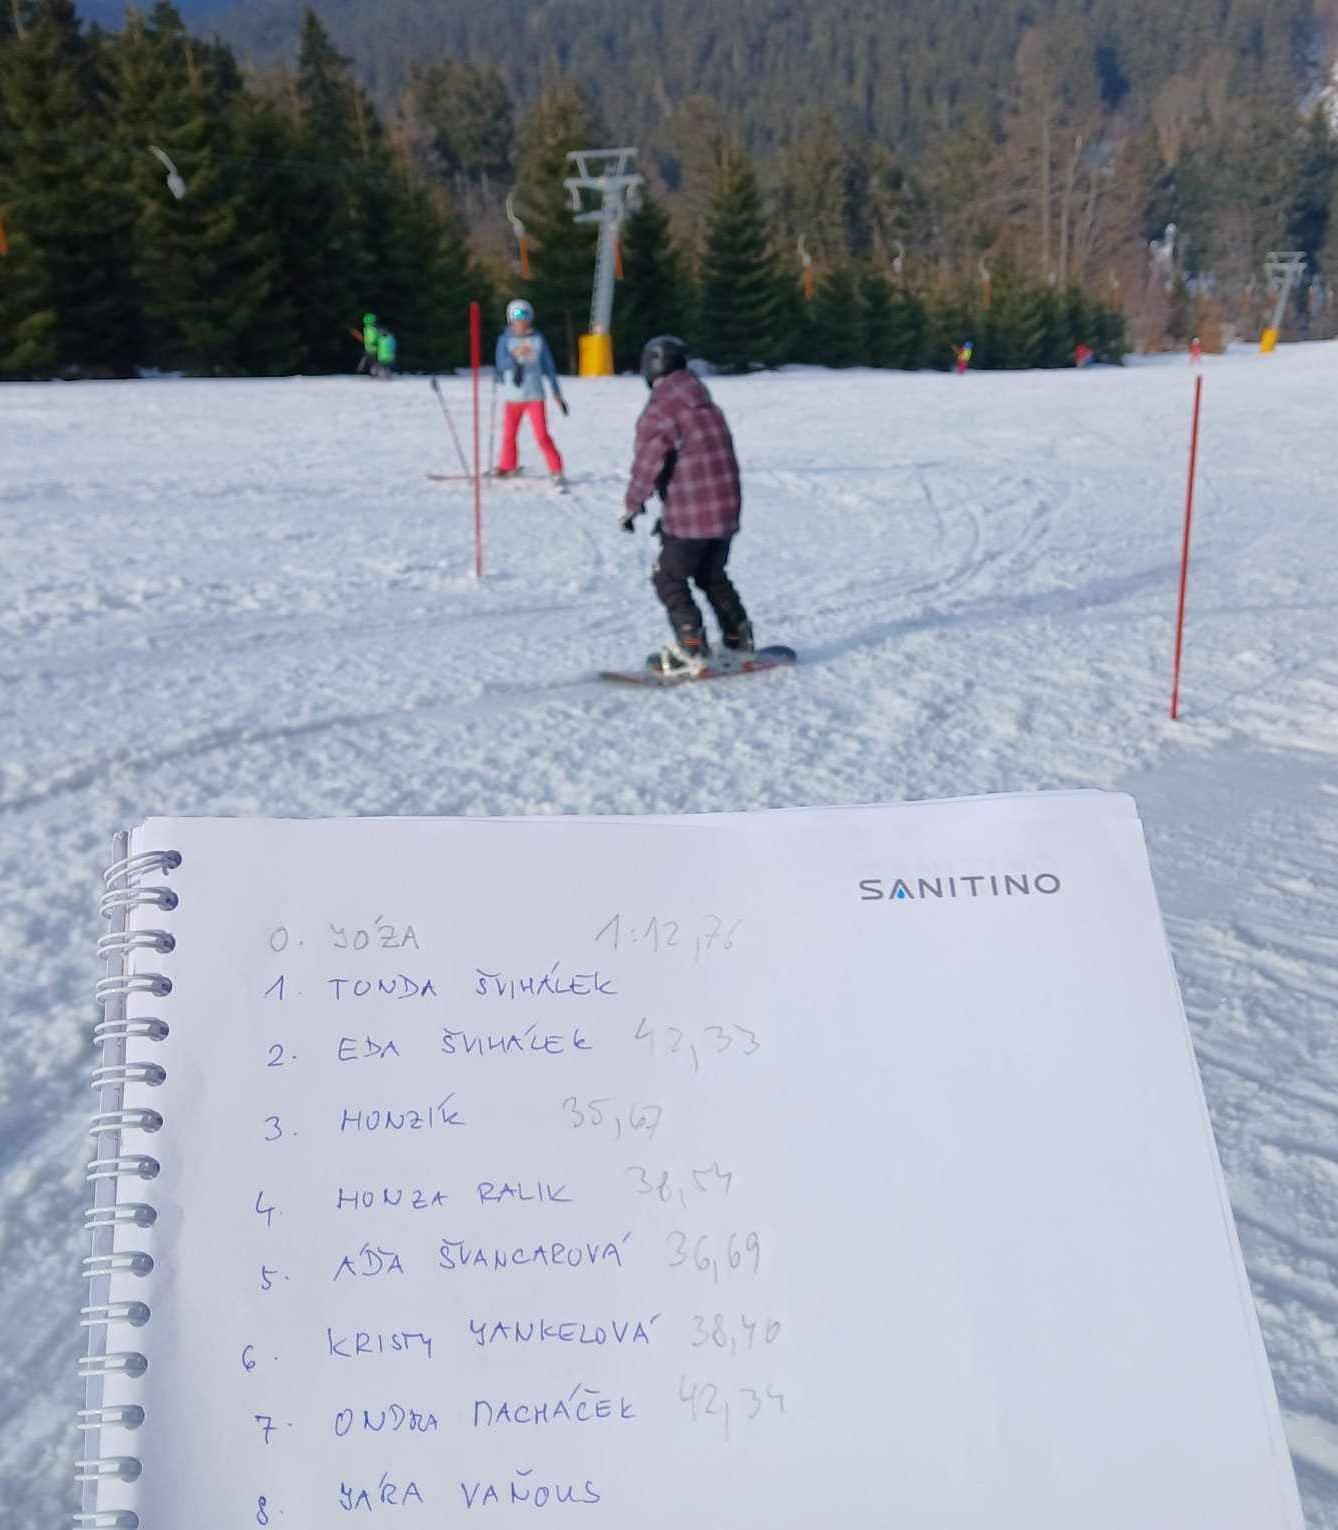 SANITINO
0. JÓŽA 1:12,76
1. TONDA ŠVIHÁLEK
2. EDA ŠVIHÁLEK 42,33
3. HONZÍK 35,67
4. HONZA RALIK 38,54
5. ÁĎA ŠVANCAROVÁ 36,69
6. KRISTY JANKELOVÁ 38,40
7. ONDRA MACHÁČEK 42,34
8. JÁRA VAŇOUS